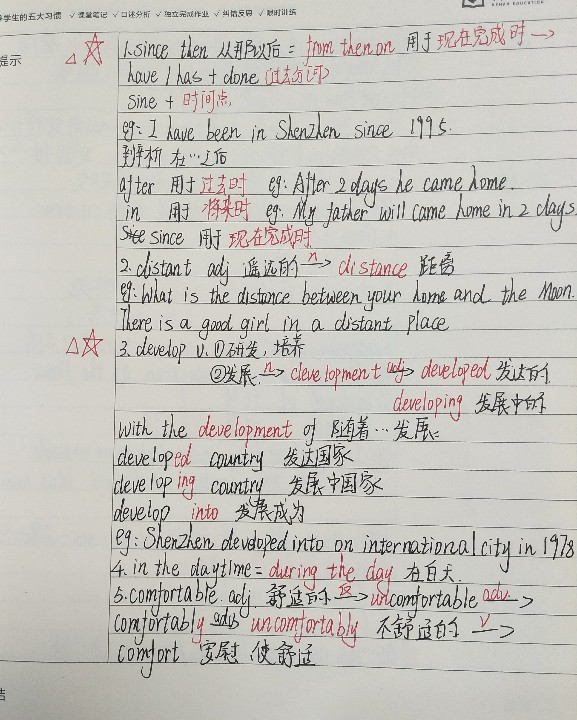 学生的五大习惯 ✓课堂笔记 ✓口述分析 ✓独立完成作业 ✓纠错反思 ✓限时训练
提示
△☆ 1.since then 从那以后 = from then on 用于现在完成时→
have / has + done (过去分词)
sine + 时间点
eg: I have been in Shenzhen since 1995.
辨析 在…之后
after 用于过去时 eg: After 2 days he came home.
in 用于 将来时 eg: My father will came home in 2 days.
since 用于 现在完成时
2. distant adj 遥远的 n→ distance 距离
eg: What is the distance between your home and the Moon.
There is a good girl in a distant place
△☆ 3. develop v. ①研发, 培养
②发展 n→ development adj→ developed 发达的
developing 发展中的
With the development of 随着…发展
developed country 发达国家
developing country 发展中国家
develop into 发展成为
eg: Shenzhen devdoped into on international city in 1978
4. in the daytime = during the day 在白天.
5. comfortable adj 舒适的 反→ uncomfortable adv→
comfortably adv uncomfortably 不舒适的 v→
comfort 安慰 使舒适
结